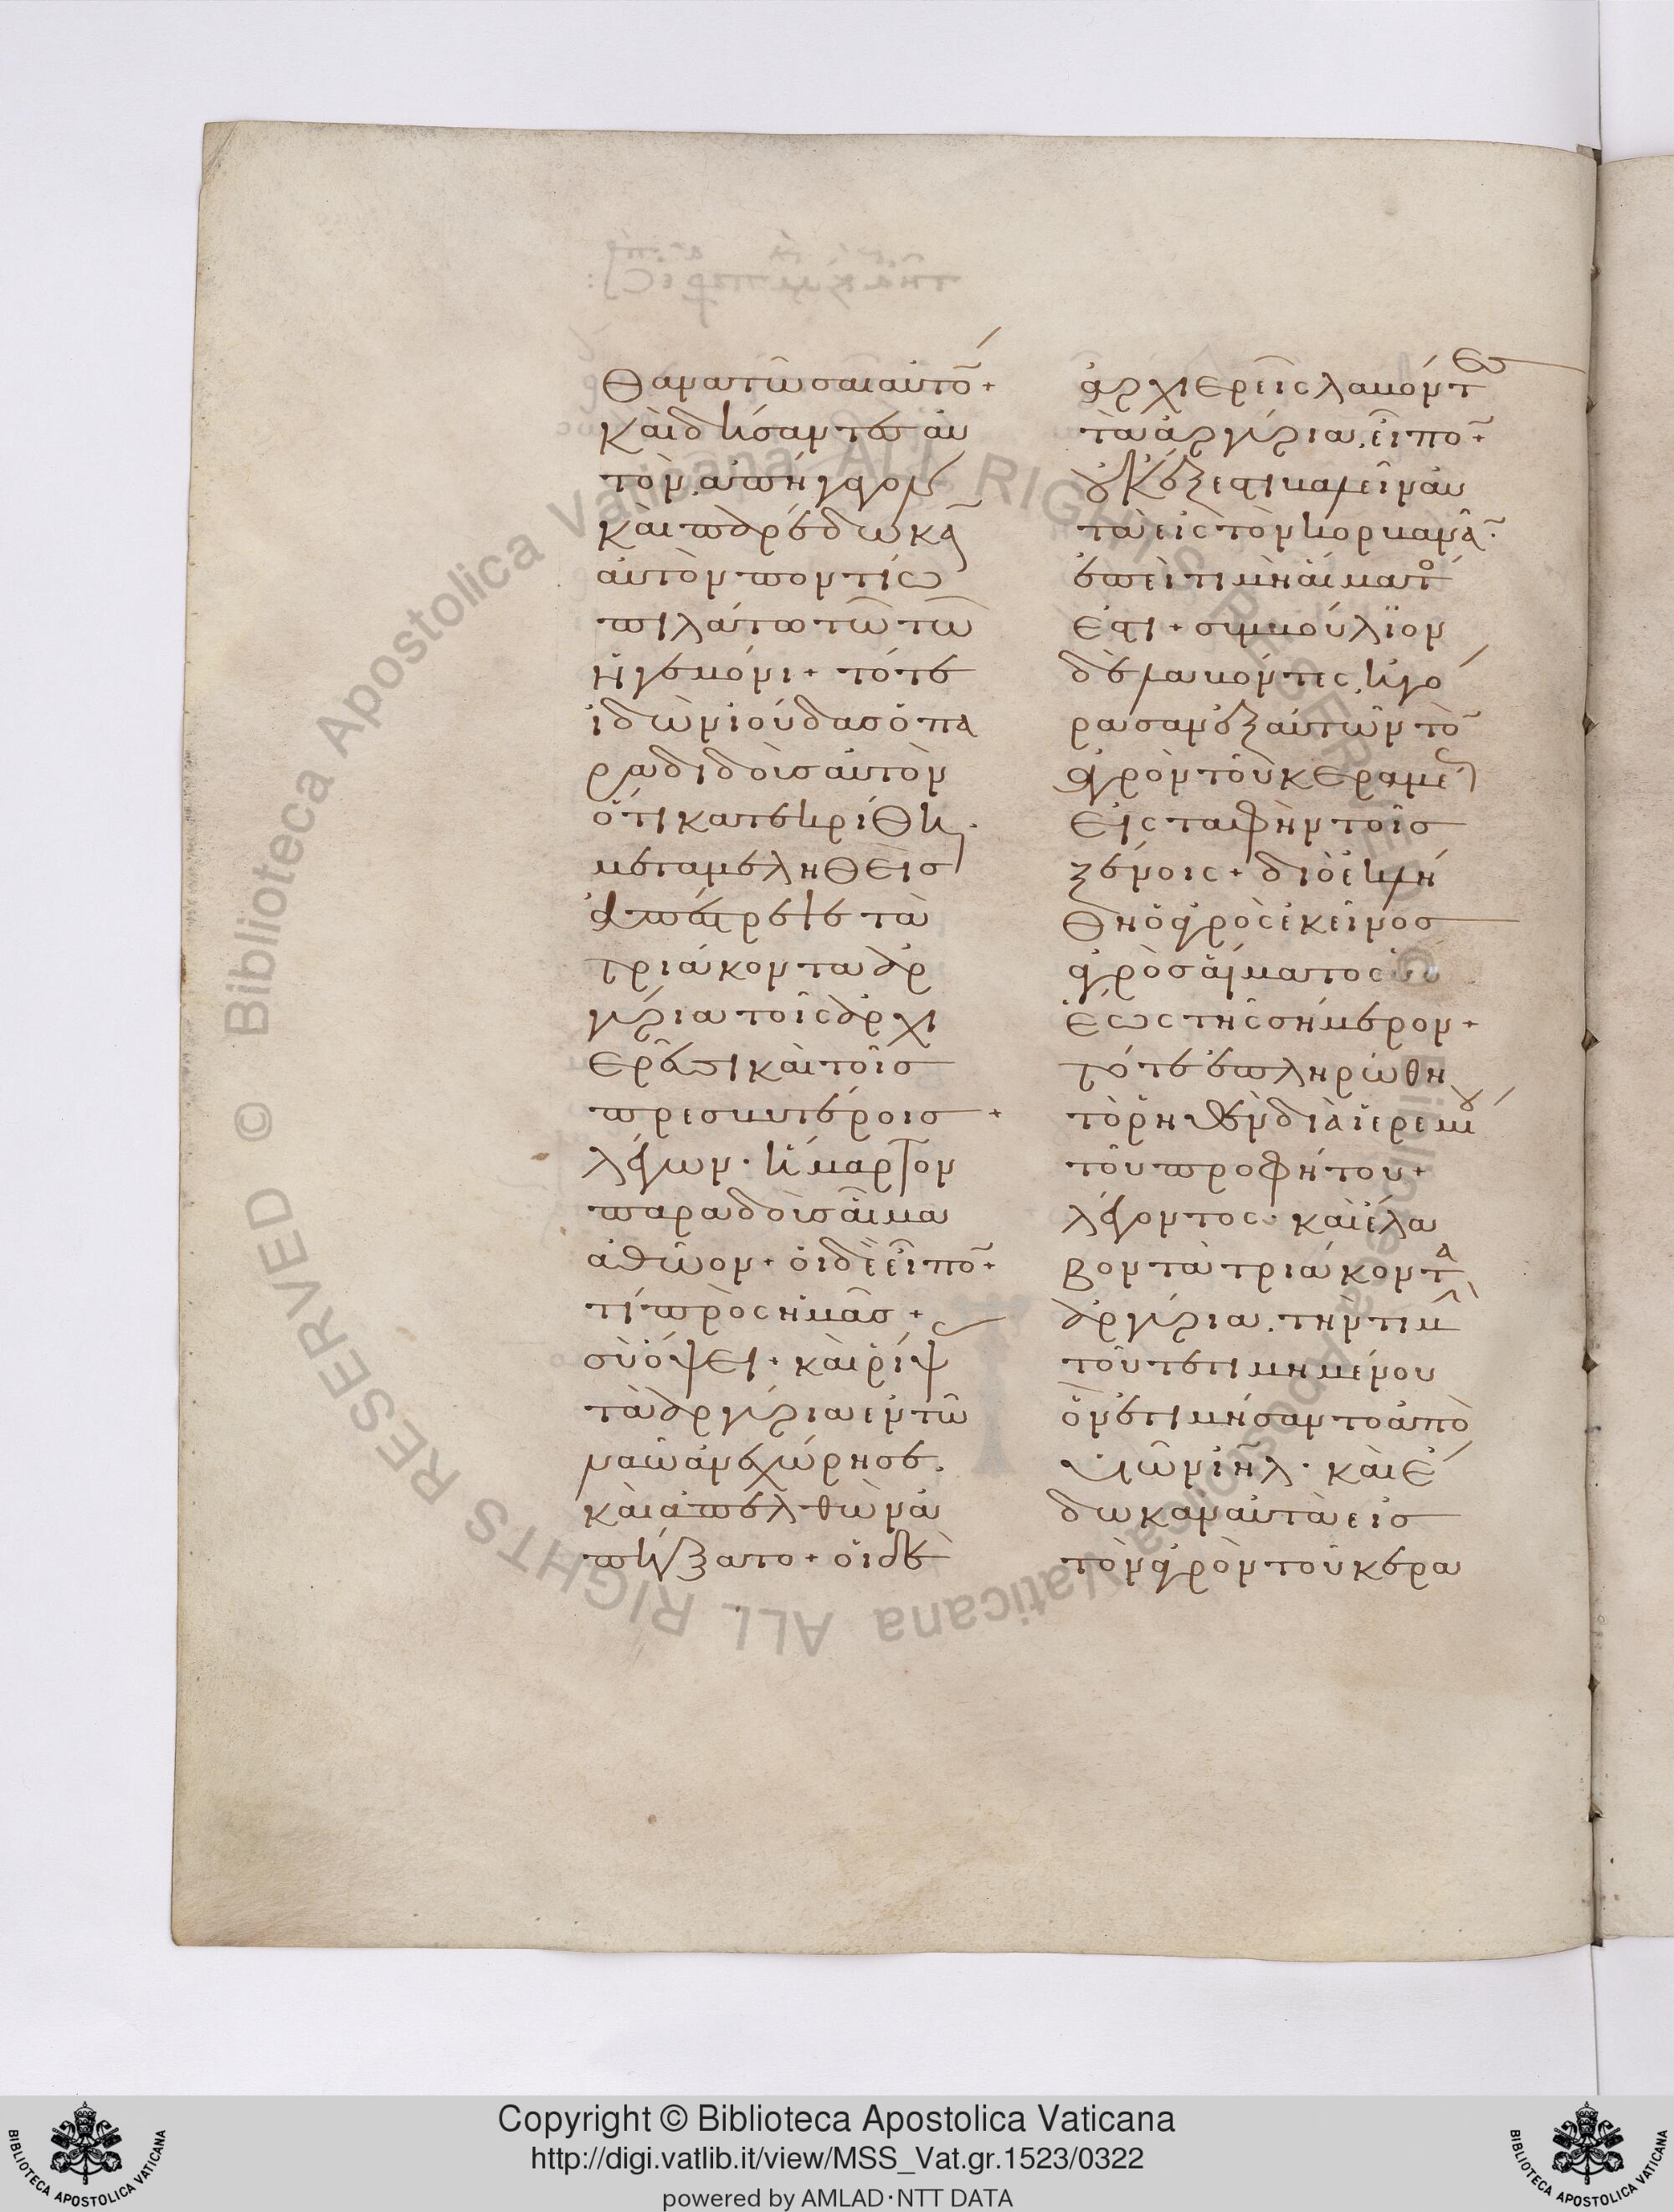 θανατῶσαι αὐτο̄ +
καὶ δήσαντες αὐ
τὸν ἀπήγαγον
καὶ παρέδωκᾱ
αὐτὸν ποντίω
πιλάτω τῶ τῶ
ἡγεμόνι + τότε
ἰδὼν ἰούδας ὁ πα
ραδιδοὺς αὐτὸν
ὅτι κατεκρίθη.
μεταμεληθεὶς
ἀπέστρεψε τὰ
τριάκοντα ἀρ
γύρια τοῖς ἀρχι
ερεῦσι καὶ τοῖς
πρεσβυτέροις +
λέγων · ἥμαρτον
παραδοὺς αἷμα
ἀθῶον + οἱ δὲ εἶπο̄ +
τί πρὸς ἡμᾶς +
σὺ ὄψει · καὶ ῥίψ
τὰ ἀργύρια ἐν τῶ
ναῶ ἀνεχώρησε.
καὶ ἀπελθὼν ἀ
πήγξατο + οἱ δὲ
ἀρχιερεῖς λαβόντες
τὰ ἀργύρια. εἶπο̄ +
οὐκ ἔξεστι βαλεῖν αὐ
τὰ εἰς τὸν κορβανᾶ̄ ·
ἐπεὶ τιμὴ αἵματο
ἐστι + συμβούλϊον
δὲ λαβόντες. ἠγό
ρασαν ἐξ αὐτῶν το̄
ἀγρὸν τοῦ κεραμέ
εἰς ταφὴν τοῖς
ξένοις + διὸ ἐκλή
θη ὁ ἀγρὸς ἐκεῖνος
ἀγρὸς αἵματος
ἕως τῆς σήμερον +
τότε ἐπληρώθη
τὸ ῥηθὲν διὰ ἱερεμίου
τοῦ προφήτου +
λέγοντος · καὶ ἔλα
βον τὰ τριάκοντα
ἀργύρια. τὴν τιμ
τοῦ τετιμημένου
ὃν ἐτιμήσαντο ἀπὸ
υἱῶν ιη̄λ · καὶ ἔ
δωκαν αὐτὰ εἰς
τὸν ἀγρὸν τοῦ κερα
Copyright © Biblioteca Apostolica Vaticana
http://digi.vatlib.it/view/MSS_Vat.gr.1523/0322
powered by AMLAD·NTT DATA
BIBLIOTECA APOSTOLICA VATICANA
BIBLIOTECA APOSTOLICA VATICANA
© Biblioteca Apostolica Vaticana ALL RIGHTS RESERVED
© Biblioteca Apostolica Vaticana ALL RIGHTS RESERVED